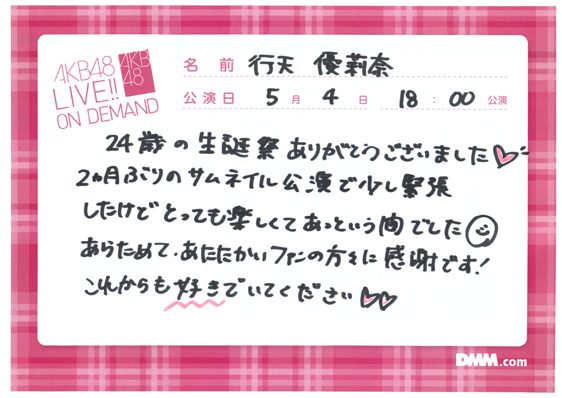 AKB48
LIVE!!
ON DEMAND
AKB
48
名前 行天 優莉奈
公演日 5月4日 18:00 公演
24歳の生誕祭ありがとうございました
2ヵ月ぶりのサムネイル公演で少し緊張
したけどとっても楽しくてあっという間でした
あらためて、あたたかいファンの方々に感謝です!
これからも好きでいてください
DMM.com